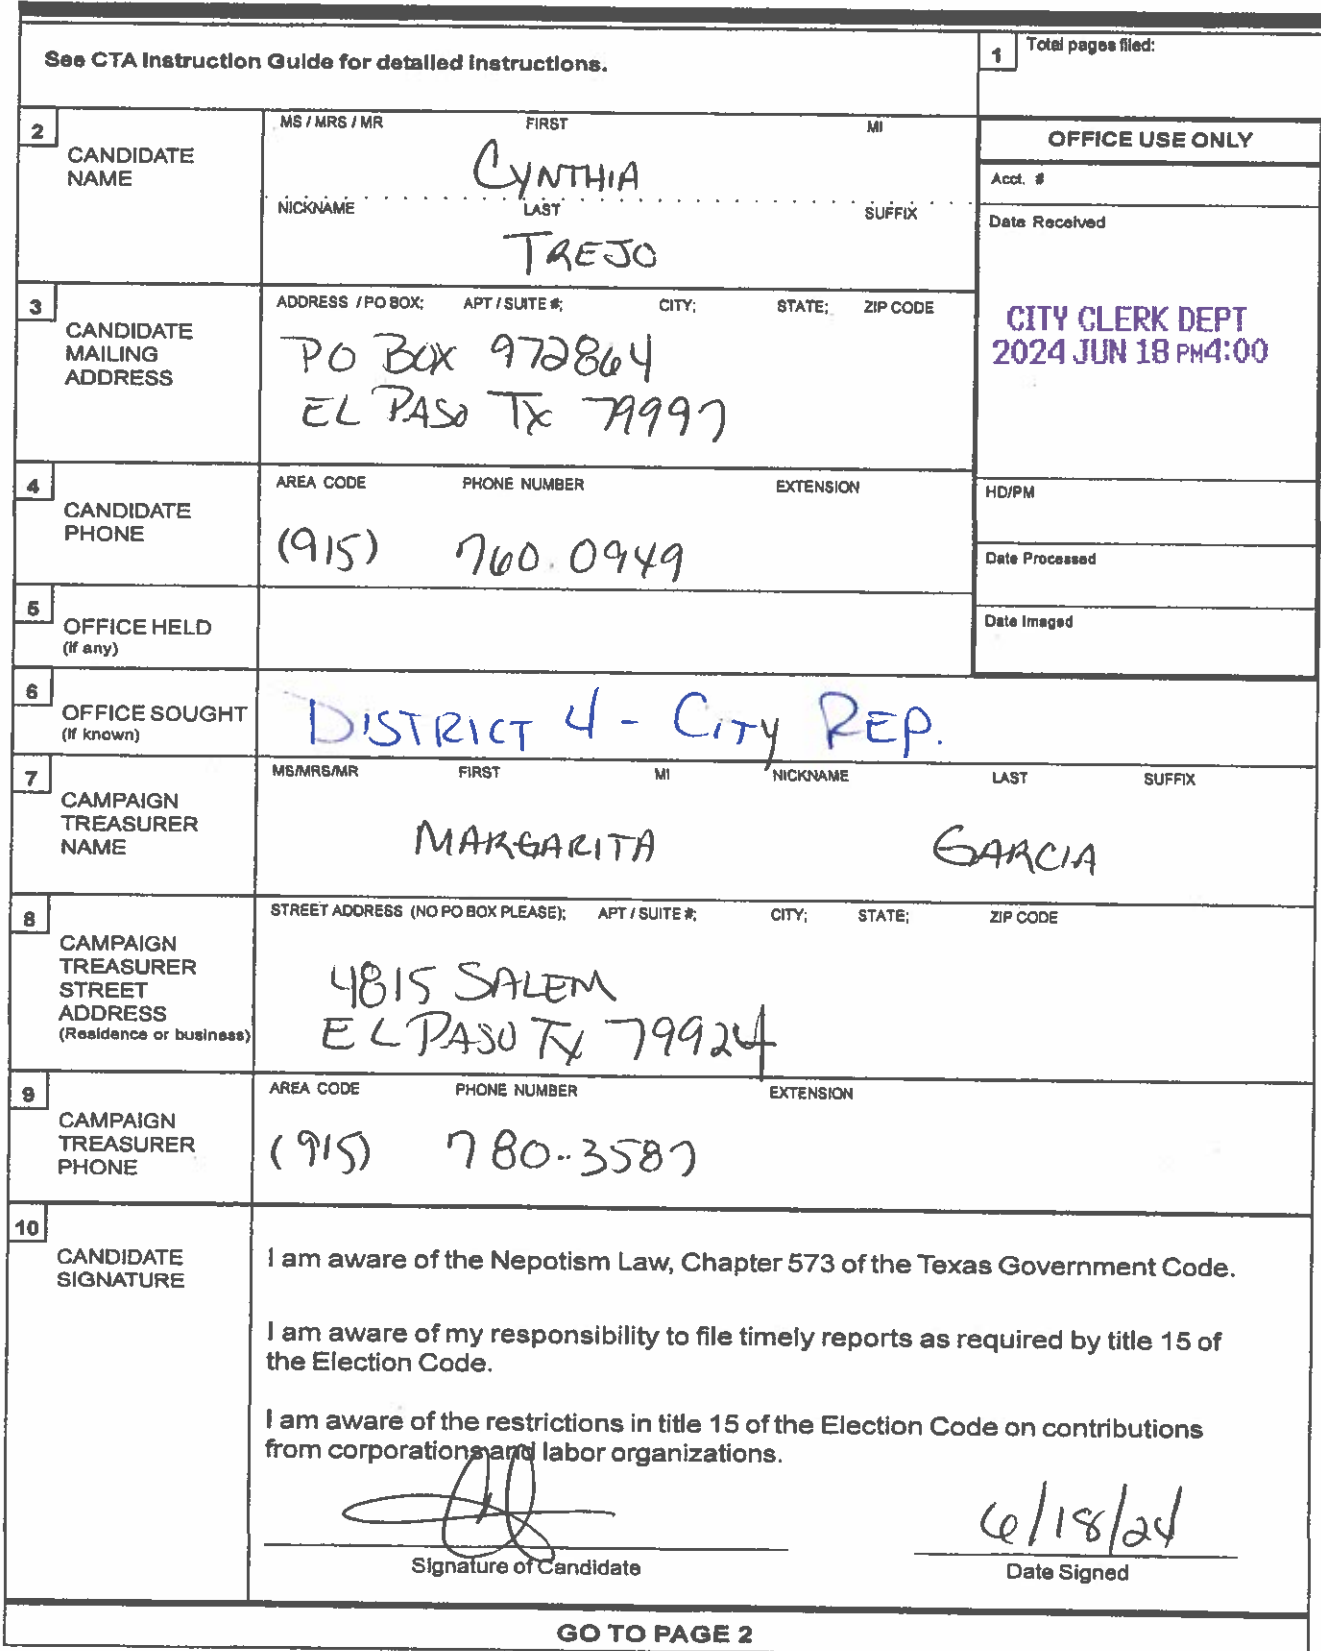 See CTA Instruction Guide for detailed instructions.
1 Total pages filed:
2 CANDIDATE NAME
MS / MRS / MR FIRST MI
CYNTHIA
NICKNAME LAST SUFFIX
TREJO
OFFICE USE ONLY
Acct. #
Date Received
CITY CLERK DEPT
2024 JUN 18 PM4:00
HD/PM
Date Processed
Date Imaged
3 CANDIDATE MAILING ADDRESS
ADDRESS / PO BOX; APT / SUITE #; CITY; STATE; ZIP CODE
PO BOX 972864
EL PASO TX 79997
4 CANDIDATE PHONE
AREA CODE PHONE NUMBER EXTENSION
(915) 760.0949
5 OFFICE HELD
(if any)
6 OFFICE SOUGHT
(if known)
DISTRICT 4 - CITY REP.
7 CAMPAIGN TREASURER NAME
MS/MRS/MR FIRST MI NICKNAME LAST SUFFIX
MARGARITA GARCIA
8 CAMPAIGN TREASURER STREET ADDRESS
(Residence or business)
STREET ADDRESS (NO PO BOX PLEASE); APT / SUITE #; CITY; STATE; ZIP CODE
4815 SALEM
EL PASO TX 79924
9 CAMPAIGN TREASURER PHONE
AREA CODE PHONE NUMBER EXTENSION
(915) 780-3587
10 CANDIDATE SIGNATURE
I am aware of the Nepotism Law, Chapter 573 of the Texas Government Code.
I am aware of my responsibility to file timely reports as required by title 15 of
the Election Code.
I am aware of the restrictions in title 15 of the Election Code on contributions
from corporations and labor organizations.
6/18/24
Signature of Candidate Date Signed
GO TO PAGE 2